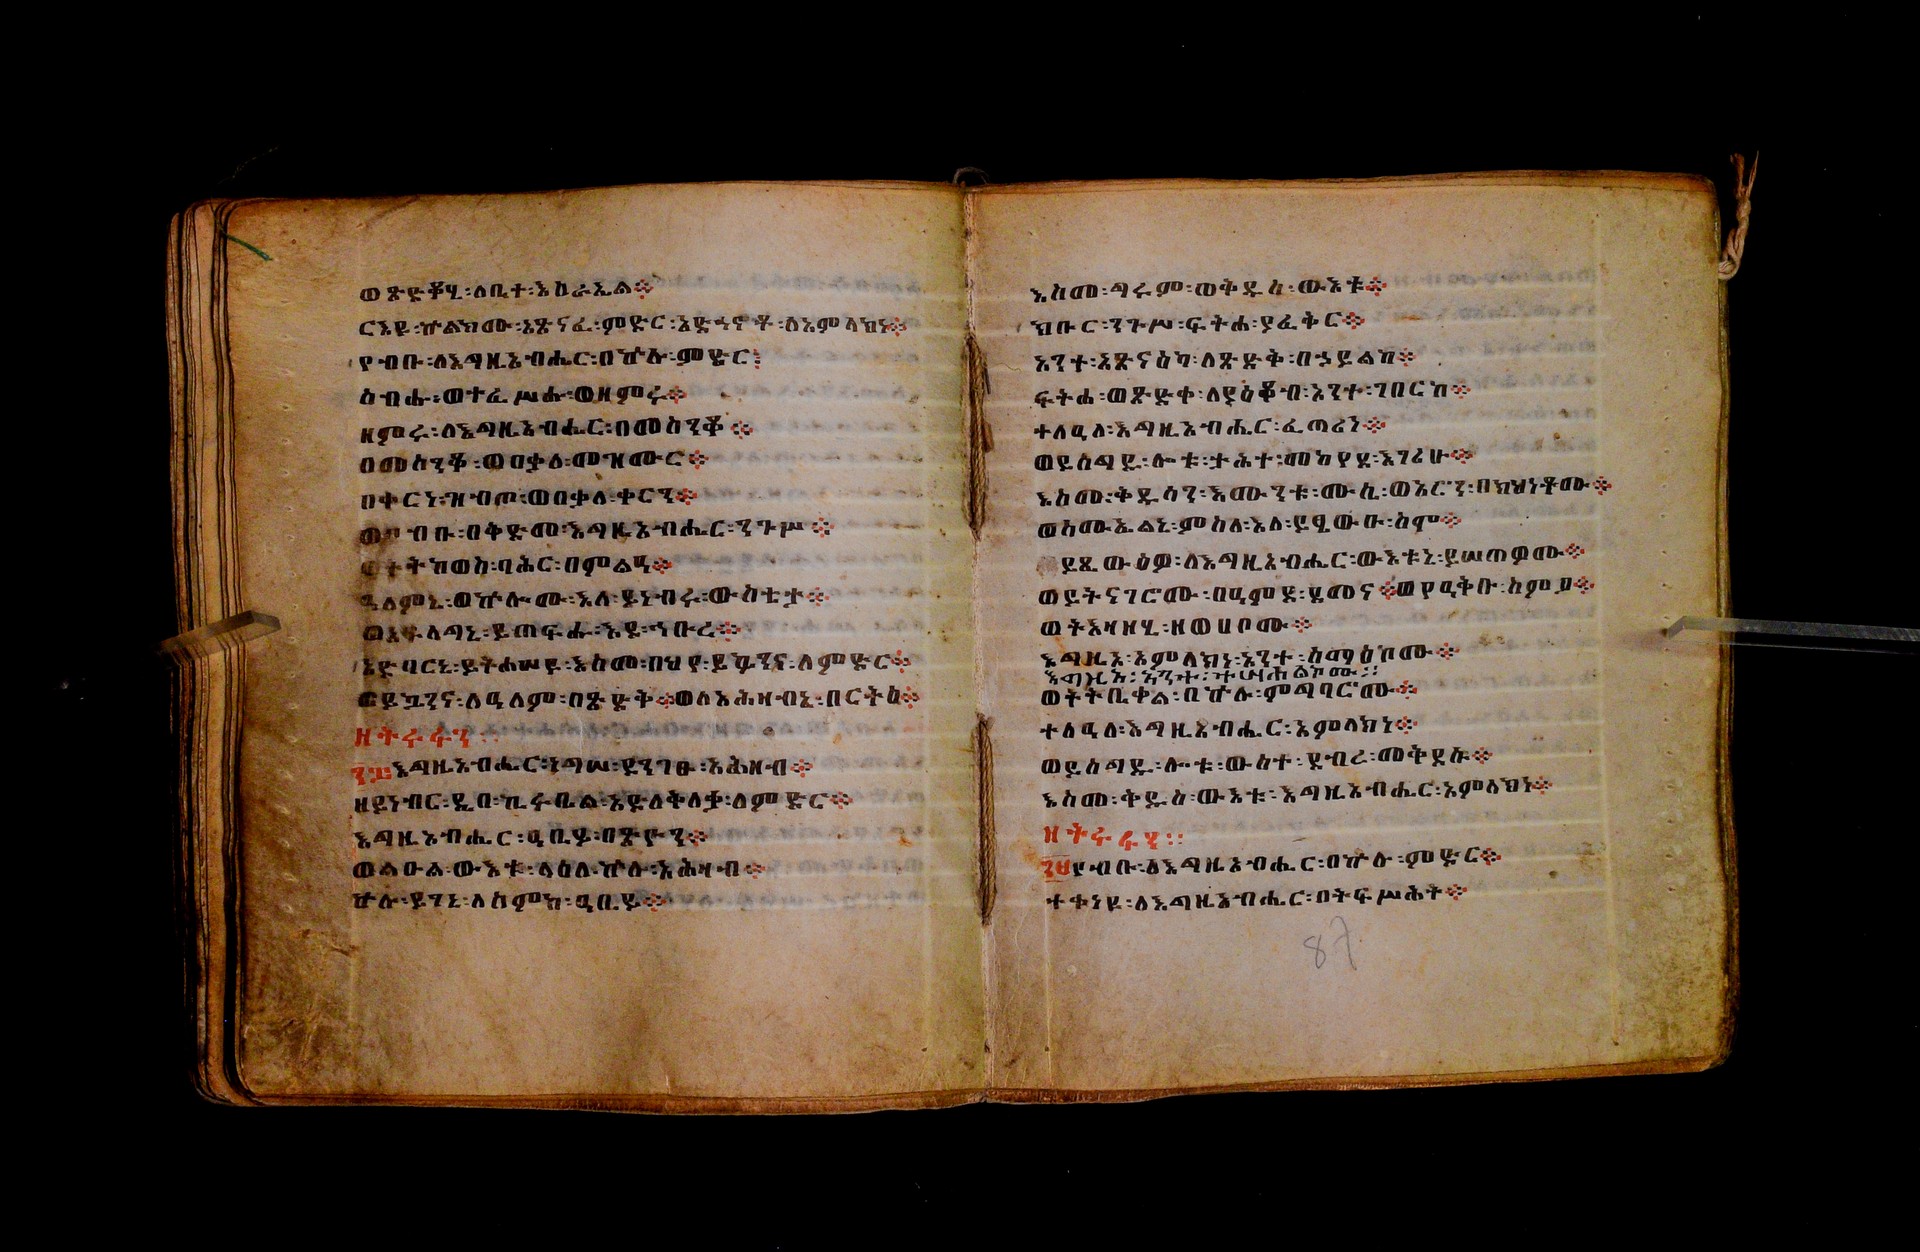 ወጽድቆሂ፡ለቤተ፡እስራኤል፨
ርእዩ፡ኵልክሙ፡አጽናፈ፡ምድር፡አድኅኖቶ፡ለአምላክነ፨
የብቡ፡ለእግዚአብሔር፡በኵሉ፡ምድር፡
ሰብሑ፡ወተፈሥሑ፡ወዘምሩ፨
ዘምሩ፡ለእግዚአብሔር፡በመሰንቆ፨
በመሰንቆ፡ወበቃለ፡መዝሙር፨
በቀርነ፡ዝብጦ፡ወበቃለ፡ቀርን፨
ወየብቡ፡በቅድመ፡እግዚአብሔር፡ንጉሥ፨
ወትትከወስ፡ባሕር፡በምልኣ፨
ዓለምኒ፡ወኵሎሙ፡እለ፡ይነብሩ፡ውስቴታ፨
ወአፍላግኒ፡ይጠፍሑ፡እደ፡ኅቡረ፨
አድባርኒ፡ይትሐሠዩ፡እስመ፡በህየ፡ይኴንና፡ለምድር፨
ወይኴንና፡ለዓለም፡በጽድቅ፨ወለአሕዛብኒ፡በርትዕ፨
ዘትሩፋን፡፡
፺፰እግዚአብሔር፡ነግሠ፡ደንገፁ፡አሕዛብ፨
ዘይነብር፡ዲበ፡ኪሩቤል፡አድለቅለቃ፡ለምድር፨
እግዚአብሔር፡ዓቢይ፡በጽዮን፨
ወልዑል፡ውእቱ፡ላዕለ፡ኵሉ፡አሕዛብ፨
ኵሉ፡ይገኒ፡ለስምከ፡ዓቢይ፨
እስመ፡ግሩም፡ወቅዱስ፡ውእቱ፨
ክቡር፡ንጉሥ፡ፍትሐ፡ያፈቅር፨
አንተ፡አጽናዕካ፡ለጽድቅ፡በኃይልከ፨
ፍትሐ፡ወጽድቀ፡ለያዕቆብ፡አንተ፡ገበርከ፨
ተለዓለ፡እግዚአብሔር፡ፈጣሪነ፨
ወይሰግዱ፡ሎቱ፡ታሕተ፡መከየደ፡እገሪሁ፨
እስመ፡ቅዱሳን፡እሙንቱ፡ሙሴ፡ወአሮን፡በክህነቶሙ፨
ወሳሙኤልኒ፡ምስለ፡እለ፡ይፄውዑ፡ስሞ፨
ይጼውዕዎ፡ለእግዚአብሔር፡ውእቱኒ፡ይሠጠዎሙ፨
ወይትናገሮሙ፡በዓምደ፡ደመና፨ወየዓቅቡ፡ስምዖ፨
ወትእዛዘሂ፡ዘወሀቦሙ፨
እግዚአ፡አምላክነ፡አንተ፡ሰማዕከሙ፨
እግዚአ፡አንተ፡ተሣሀልኮሙ፡፡
ወትትቤቀል፡በኵሉ፡ምግባሮሙ፨
ተለዓለ፡እግዚአብሔር፡አምላክነ፨
ወይሰግዱ፡ሎቱ፡ውስተ፡ደብረ፡መቅደሱ፨
እስመ፡ቅዱስ፡ውእቱ፡እግዚአብሔር፡አምላክነ፨
ዘትሩፋን፡፡
፺፱የብቡ፡ለእግዚአብሔር፡በኵሉ፡ምድር፨
ተቀነዩ፡ለእግዚአብሔር፡በትፍሥሕት፨
87